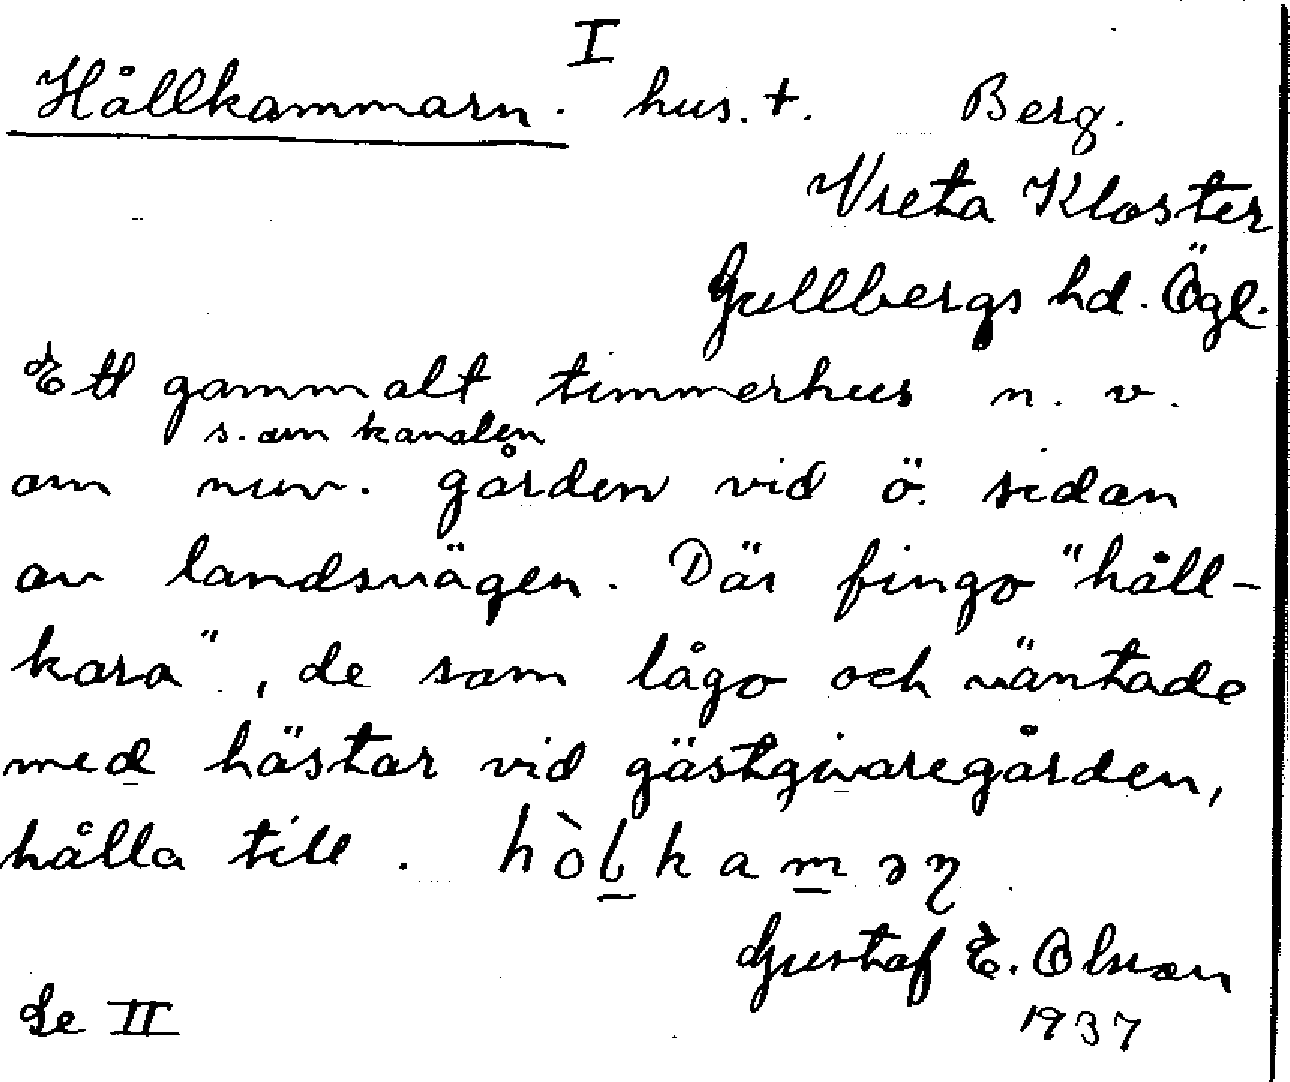 I
Hållkammarn. hus. +. Berg.
Vreta Kloster
Gullbergs hd. Ögl.
Ett gammalt timmerhus n. v.
s. om kanalen
om nuv. gården vid ö. sidan
av landsvägen. Där fingo "håll-
kara", de som lågo och väntade
med hästar vid gästgivaregården,
hålla till. hòlkamən
Gustaf E. Olsson
1937
Se II